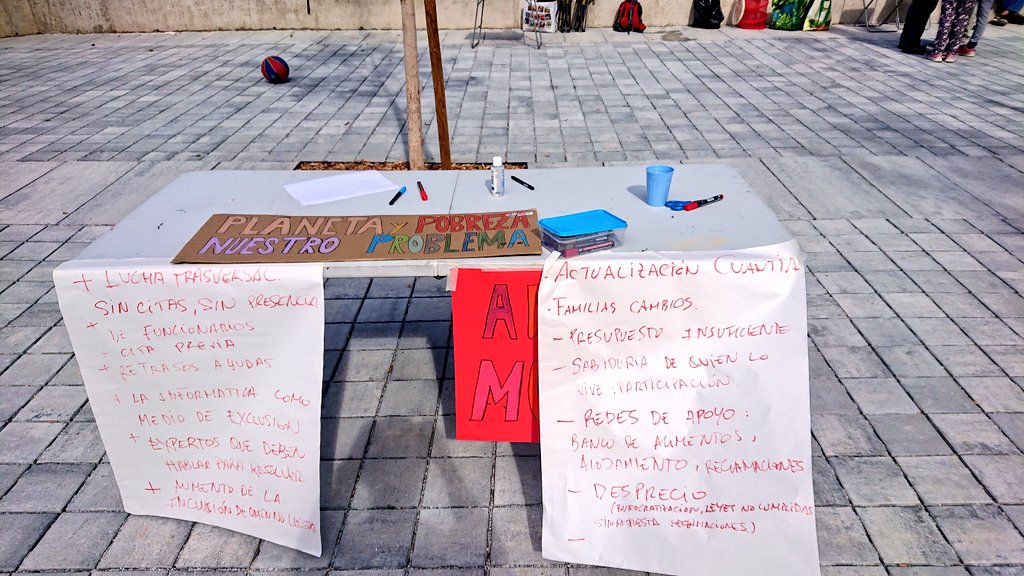 PLANETA Y POBREZA
NUESTRO PROBLEMA
+ LUCHA TRASVERSAL.
SIN CITAS, SIN PRESENCIA
+ DE FUNCIONARIOS
- CITA PREVIA
+ RETRASOS AYUDAS
+ LA INFORMATICA COMO
MEDIO DE EXCLUSION
+ EXPERTOS QUE DEBEN
HABLAR PARA RESOLVER
+ AUMENTO DE LA
INCLUSION DE QUIEN NO LLEGA
A
M
. ACTUALIZACIÓN CUANTIA
. FAMILIAS CAMBIOS.
- PRESUPUESTO INSUFICIENTE
- SABIDURIA DE QUIEN LO
VIVE. PARTICIPACIÓN
- REDES DE APOYO:
BANCO DE ALIMENTOS,
ALOJAMIENTO, RECLAMACIONES
- DESPRECIO
(BUROCRATIZACION, LEYES NO CUMPLIDAS
SIN RESPUESTA RECLAMACIONES)
-